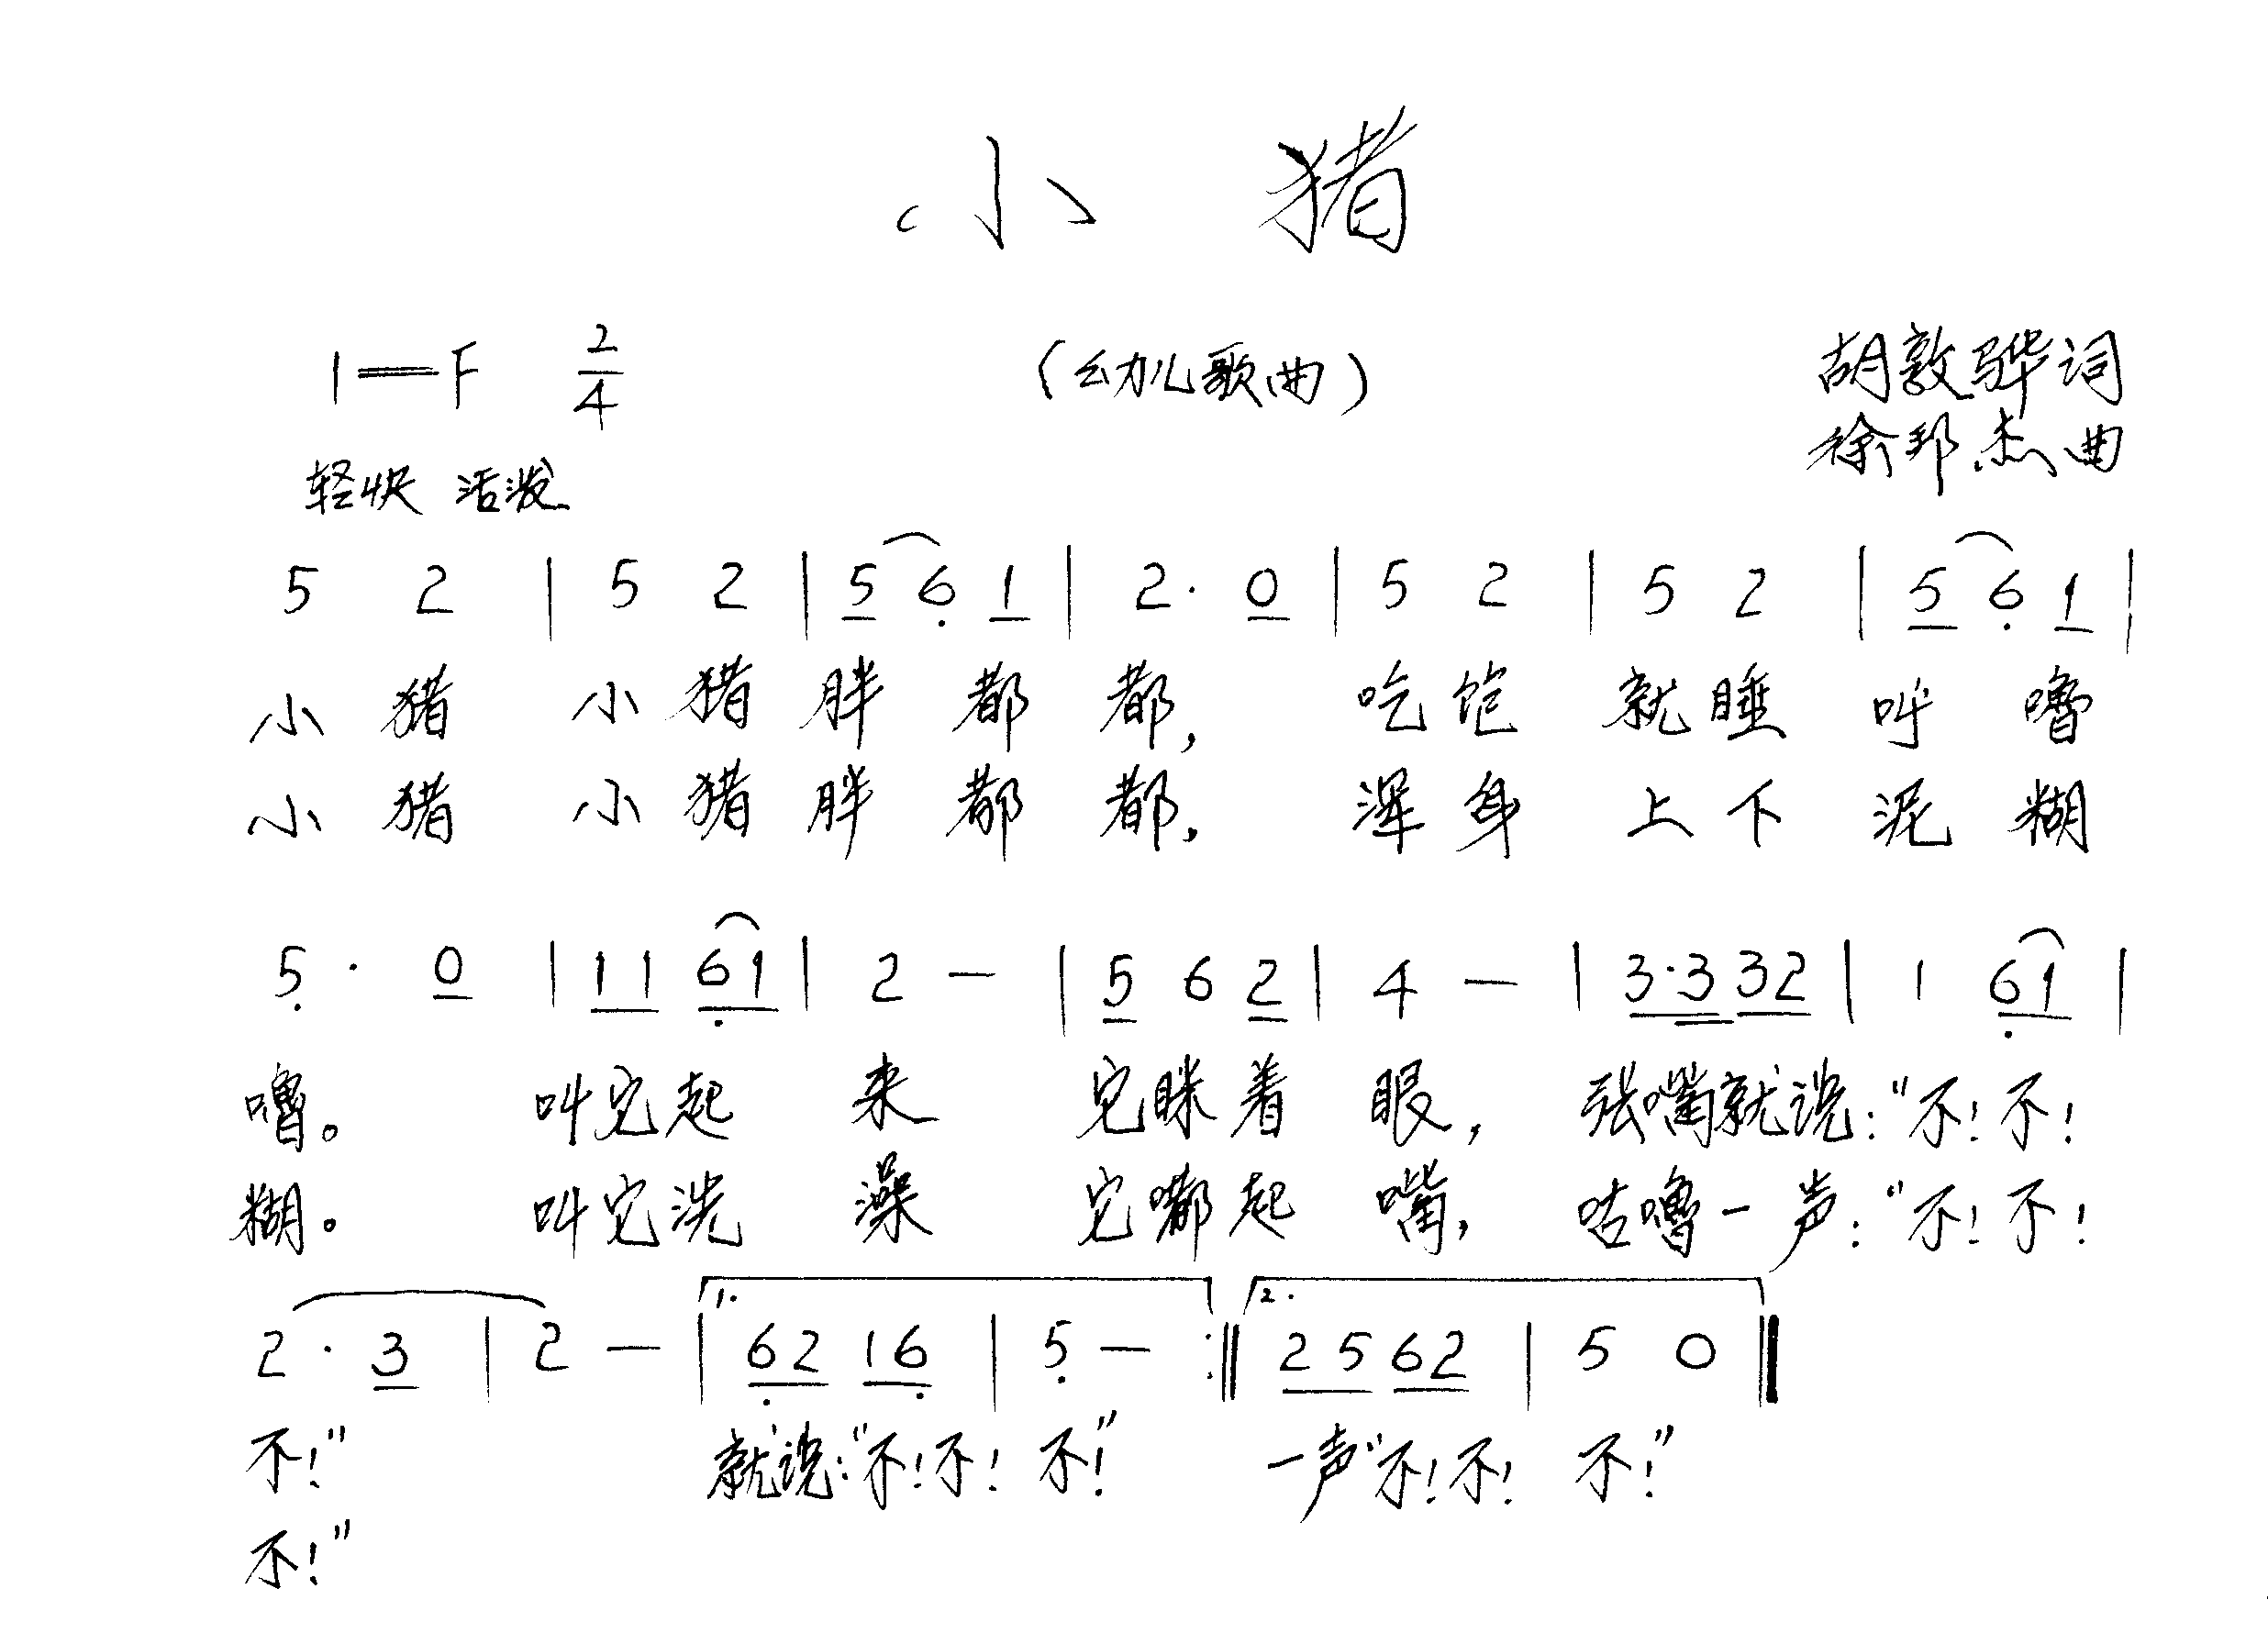 小 猪
1=F 2/4 （幼儿歌曲） 胡敦骅词
徐邦杰曲
轻快 活泼
5 2 | 5 2 | 5 6̣ 1 | 2· 0 | 5 2 | 5 2 | 5 6̣ 1 |
小 猪 小 猪 胖 都 都, 吃 饱 就 睡 呼 噜
小 猪 小 猪 胖 都 都, 浑 身 上 下 泥 糊
5̣ · 0 | 1 1 6̣ 1 | 2 — | 5 6 2 | 4 — | 3·3 3 2 | 1 6̣ 1 |
噜。 叫它起 来 它眯着 眼, 张嘴就说:“不! 不!
糊。 叫它洗 澡 它嘟起 嘴, 咕噜一声:“不! 不!
2 · 3 | 2 — | 1. 6̣ 2 1 6̣ | 5̣ — :‖ 2. 2 5 6 2 | 5 0 ‖
不!” 就说:“不!不! 不!” 一声“不!不! 不!”
不!”